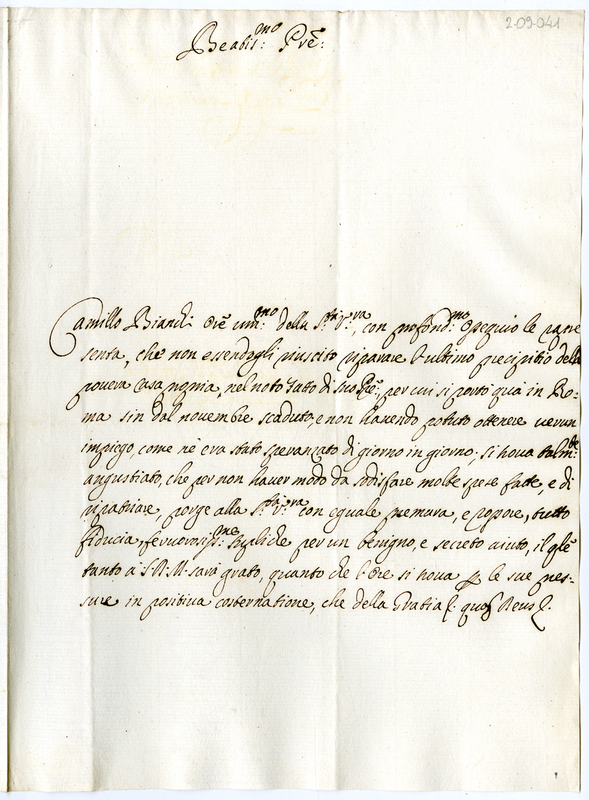 2-09-041
Beatis:mo Prē:
Camillo Bianchi Orē um:mo della S:tà V:ra, con profond:mo ossequio le rapre
senta, che non essendogli riuscito riparare l'ultimo precipitio della
povera casa propria, nel noto fatto di suo Prē:, per cui si portò quà in Ro=
ma sin dal novembre scaduto, e non havendo potuto ottenere verun
impiego, come nè era stato speranzato di giorno in giorno, si trova talm:te
angustiato, che per non haver modo da sodisfare molte spese fatte, e di
ripatriare, porge alla S:tà V:ra con eguale premura, e rossore, tutto
fiducia, fervorosiss:me supliche per un benigno, e secreto aiuto, il qle
tanto à S. D. M. sarà grato, quanto che l'Ore si trova p le sue pres=
sure in positiva costernatione, che della Gratia &. quas Deus &.